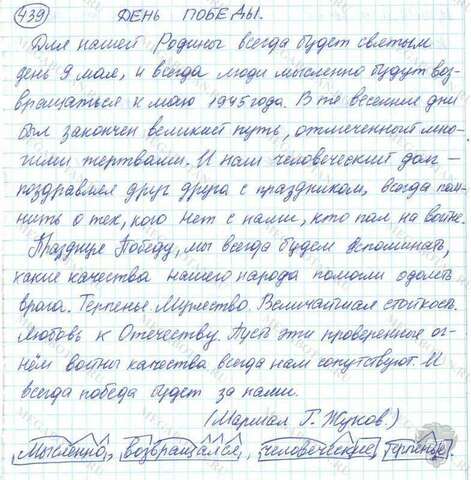 439 ДЕНЬ ПОБЕДЫ.
Для нашей Родины всегда будет святым
день 9 мая, и всегда люди мысленно будут воз-
вращаться к маю 1945 года. В те весенние дни
был закончен великий путь, отмеченный мно-
гими жертвами. И наш человеческий долг –
поздравляя друг друга с праздником, всегда пом-
нить о тех, кого нет с нами, кто пал на войне.
Празднуя Победу, мы всегда будем вспоминать,
какие качества нашего народа помогли одолеть
врага. Терпенье. Мужество. Величайшая стойкость.
Любовь к Отечеству. Пусть эти проверенные ог-
нём войны качества всегда нам сопутствуют. И
всегда победа будет за нами.
(Маршал Г. Жуков.)
Мысленно, возвращаться, человеческие, терпенье.